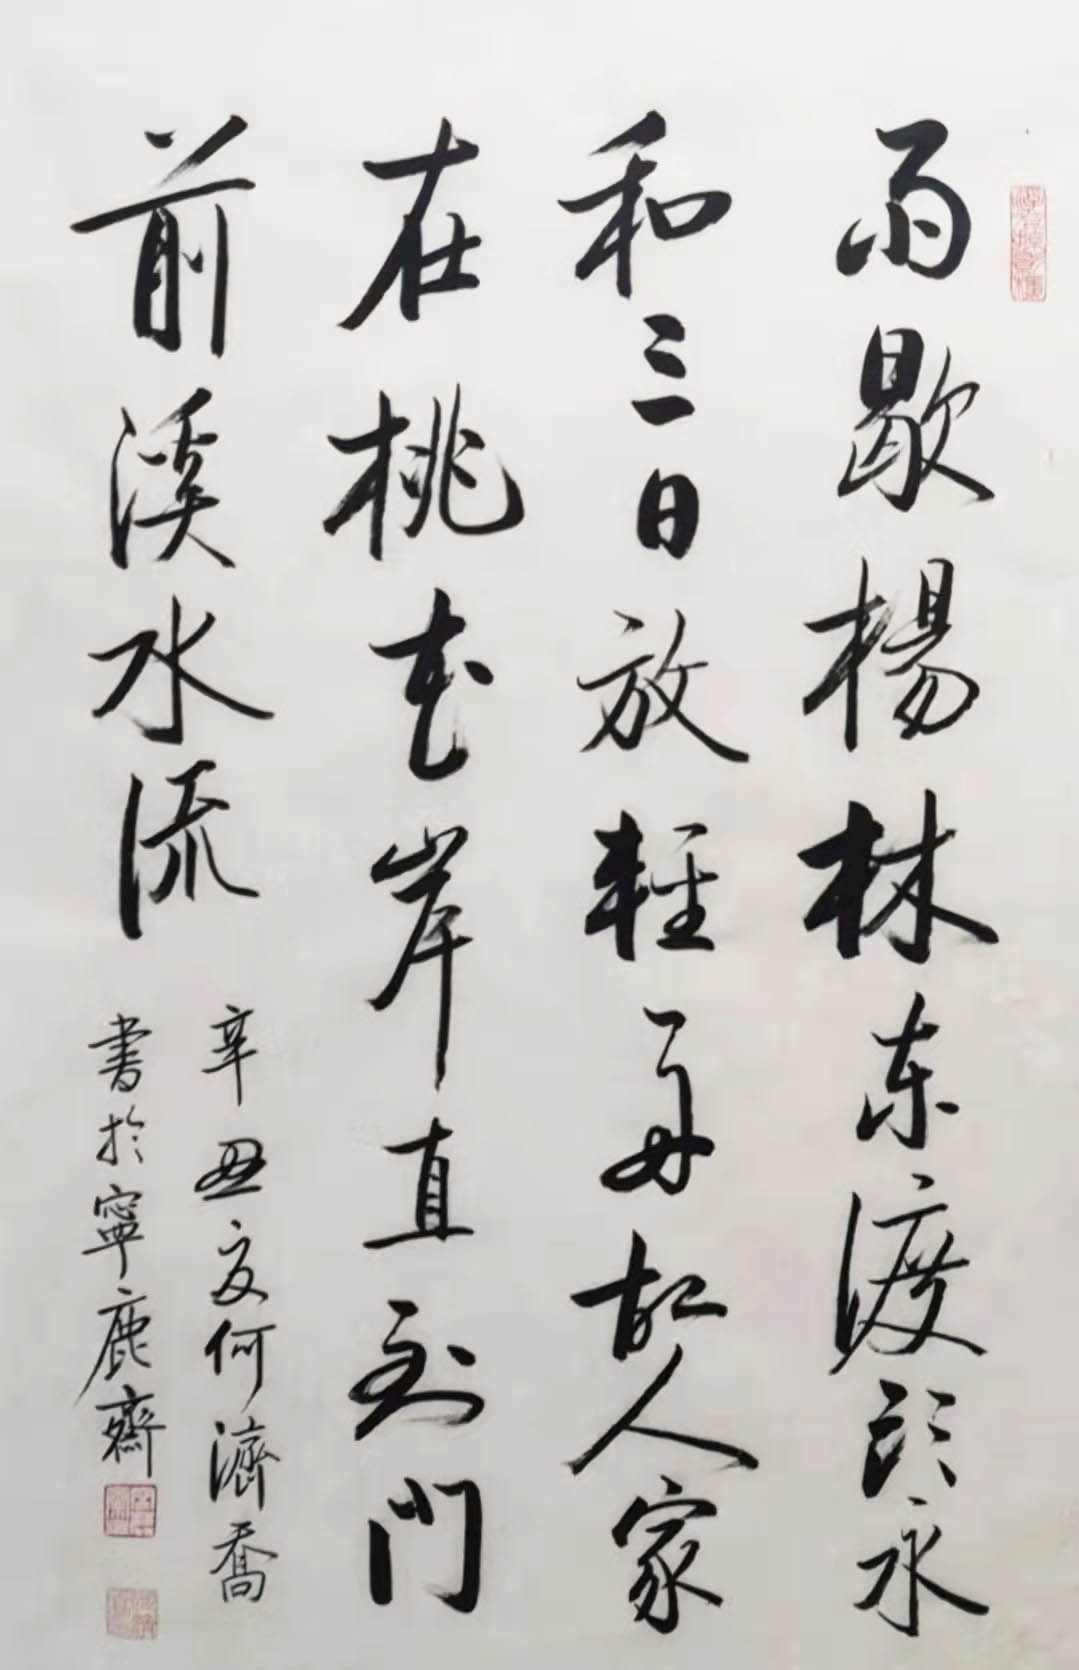 雨歇楊林东渡头永
和三日放轻舟故人家
在桃花岸直到门
前溪水流
辛丑夏何濟喬
書於寧鹿齋